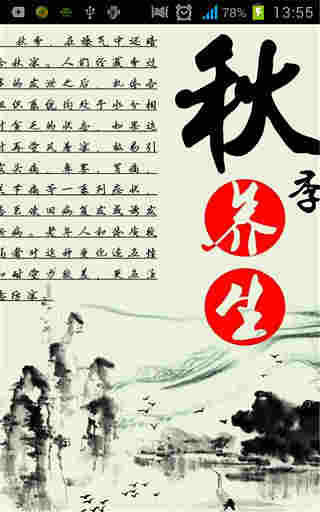 78% 13:55
秋季
养
生
秋季,在燥气中还暗
含秋凉。人们经夏季过
多的发泄之后,机体各
组织系统均处于水分相
对贫乏的状态,如果这
时再受风着凉,极易引
发头痛、鼻塞、胃痛、
关节痛等一系列症状,
甚至使旧病复发或诱发
新病。老年人和体质较
弱者对这种变化适应性
和耐受力较差,更应注
意防凉。